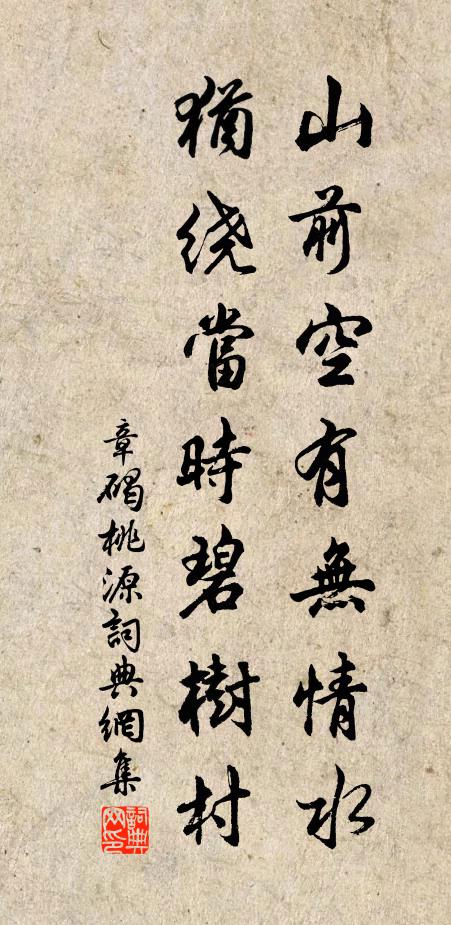 山前空有無情水
猶绕當時碧樹村
章碣桃源詞典網集
詞典网印